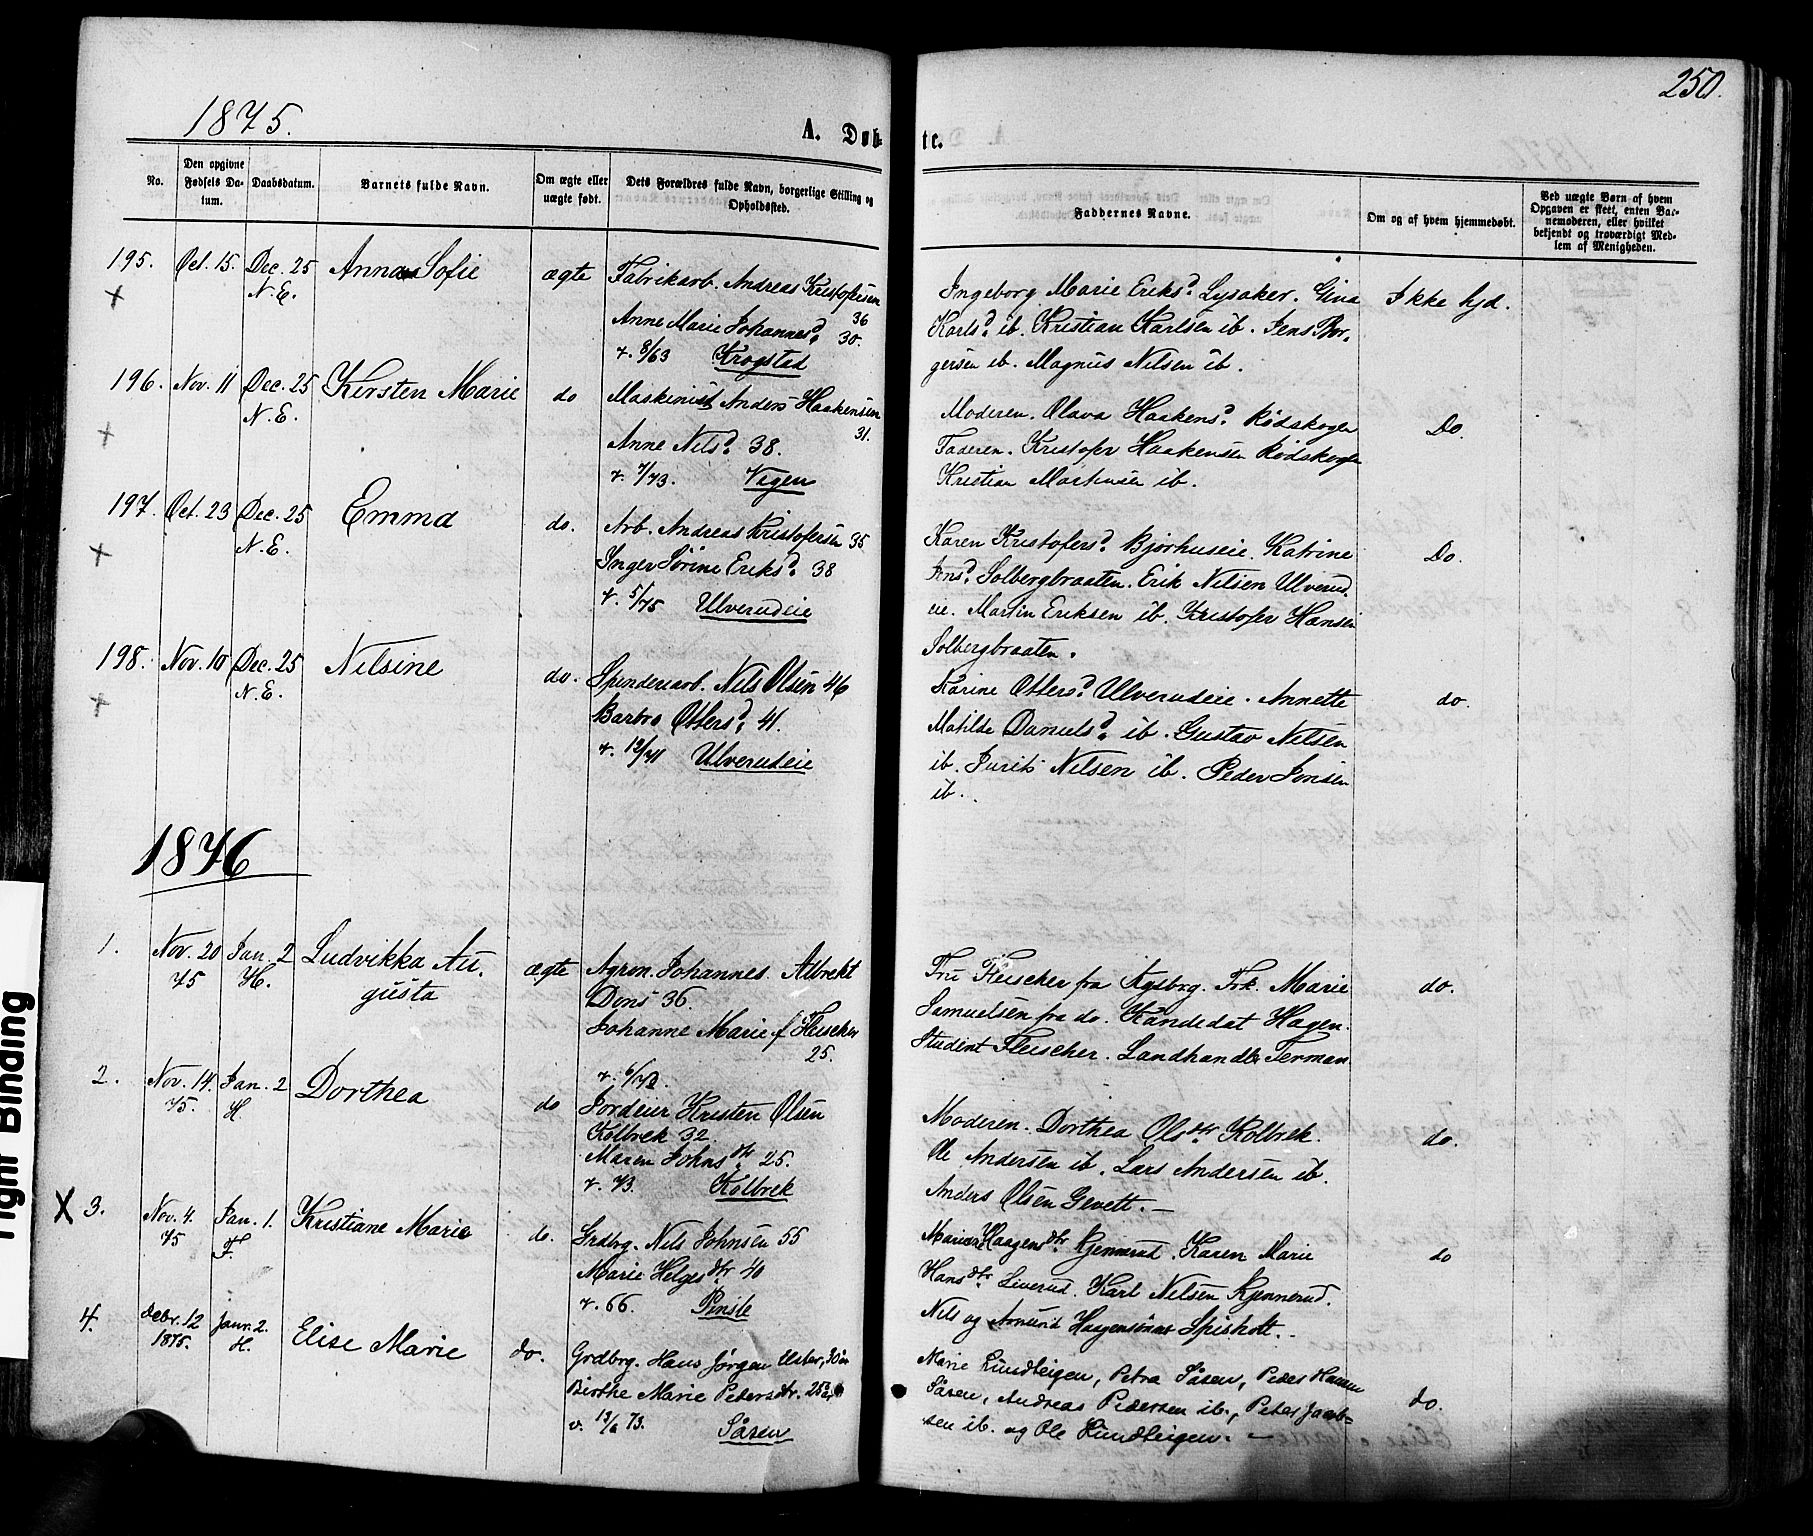 250.
1875.
A. Døb-
te.
No.
Den opgivne Fødsels Da-
tum.
Daabsdatum.
Barnets fulde Navn.
Om ægte eller
uægte født.
Dets Forældres fulde Navn, borgerlige Stilling og
Opholdssted.
Faddernes Navne.
Om og af hvem hjemmedøbt.
Ved uægte Børn af hvem
Opgaven er skeet, enten Bar-
nemoderen, eller hvilket
bekjendt og troværdigt Med-
lem af Menigheden.
195. Oct. 15. Dec. 25 Anna Sofie ægte Fabrikarb. Andreas Kristofersen
+ N.E. 36
Anne Marie Johannesd. 30.
v. 8/63 Krogstad
Ingeborg Marie Eriksd. Lysaker. Gina
Karlsd. ib. Kristian Karlsen ib. Jens Bor-
gersen ib. Magnus Nilsen ib.
Ikke hjd.
196. Nov. 11 Dec. 25 Kirsten Marie do Maskinist Anders Haakensen
+ N.E. 31.
Anne Nilsd. 38.
v. 7/73. Vegen
Moderen. Olava Haakensd. Rødskogen
Faderen. Kristofer Haakensen Rødskogen
Kristian Martinsen ib.
Do.
197. Oct. 23 Dec. 25 Emma do. Arb. Andreas Kristofersen 35
+ N.E.
Inger Sørine Eriksd. 38
v. 5/75 Ulverudeie
Karen Kristofersd. Bjørhuseie. Katrine
Jensd. Solbergbraaten. Erik Nilsen Ulverud-
eie. Martin Eriksen ib. Kristofer Hansen
Solbergbraaten.
Do.
198. Nov. 10 Dec. 25 Nilsine do. Spinderiarb. Nils Olsen 46
+ N.E.
Barbro Ottersd. 41.
v. 12/71 Ulverudeie
Karine Ottersd. Ulverudeie. Annette
Matilde Danielsd. ib. Gustav Nilsen
ib. Nilsen ib. Peder Jonsen
ib.
do.
1876
1. Nov. 20 Jan. 2 Ludvikka Au-
75 H. gusta
ægte Agron. Johannes Albrekt
Dons 36.
Johanne Marie f Fleischer
25.
v. 6/73.
Fru Fleischer fra Kgsbrg. Frk. Marie
Samuelsen fra do. Kandedat Hagen.
Student Fleischer. Landhandler Terman
do.
2. Nov. 14. Jan. 2 Dorthea do Jordeier Kristen Olsen
75. H
Kolbrek 32.
Maren Johnsdtr. 25.
v. 73. Kolbrek
Moderen. Dorthea Olsdtr. Kolbrek.
Ole Andersen ib. Lars Andersen ib.
Anders Olsen Gevett. —
do.
X 3. Nov. 4. Jan. 1. Kristiane Marie do. Grdbrg. Nils Johnsen 55
75 F.
Marie Helgesdtr 40
v. 66. Pensle
Haagensdtr. Kjennerud. Karen Marie
Hansdtr. Liverud. Karl Nilsen Kjennerud.
Nils og Amund Haagensønner Spisholt. —
do
4. Debr. 12 Janr. 2. Elise Marie do. Grdbrg. Hans Jørgen Uster, 30
1875. H.
Birthe Marie Petersdtr. 25
v. 13/6 73. Såsen
Marie Lundteigen, Petra Såsen, Peder Hansen
Såsen, Andreas Pedersen ib., Peter Jacob-
sen ib. og Ole Lundteigen. —
do.
Tight Binding